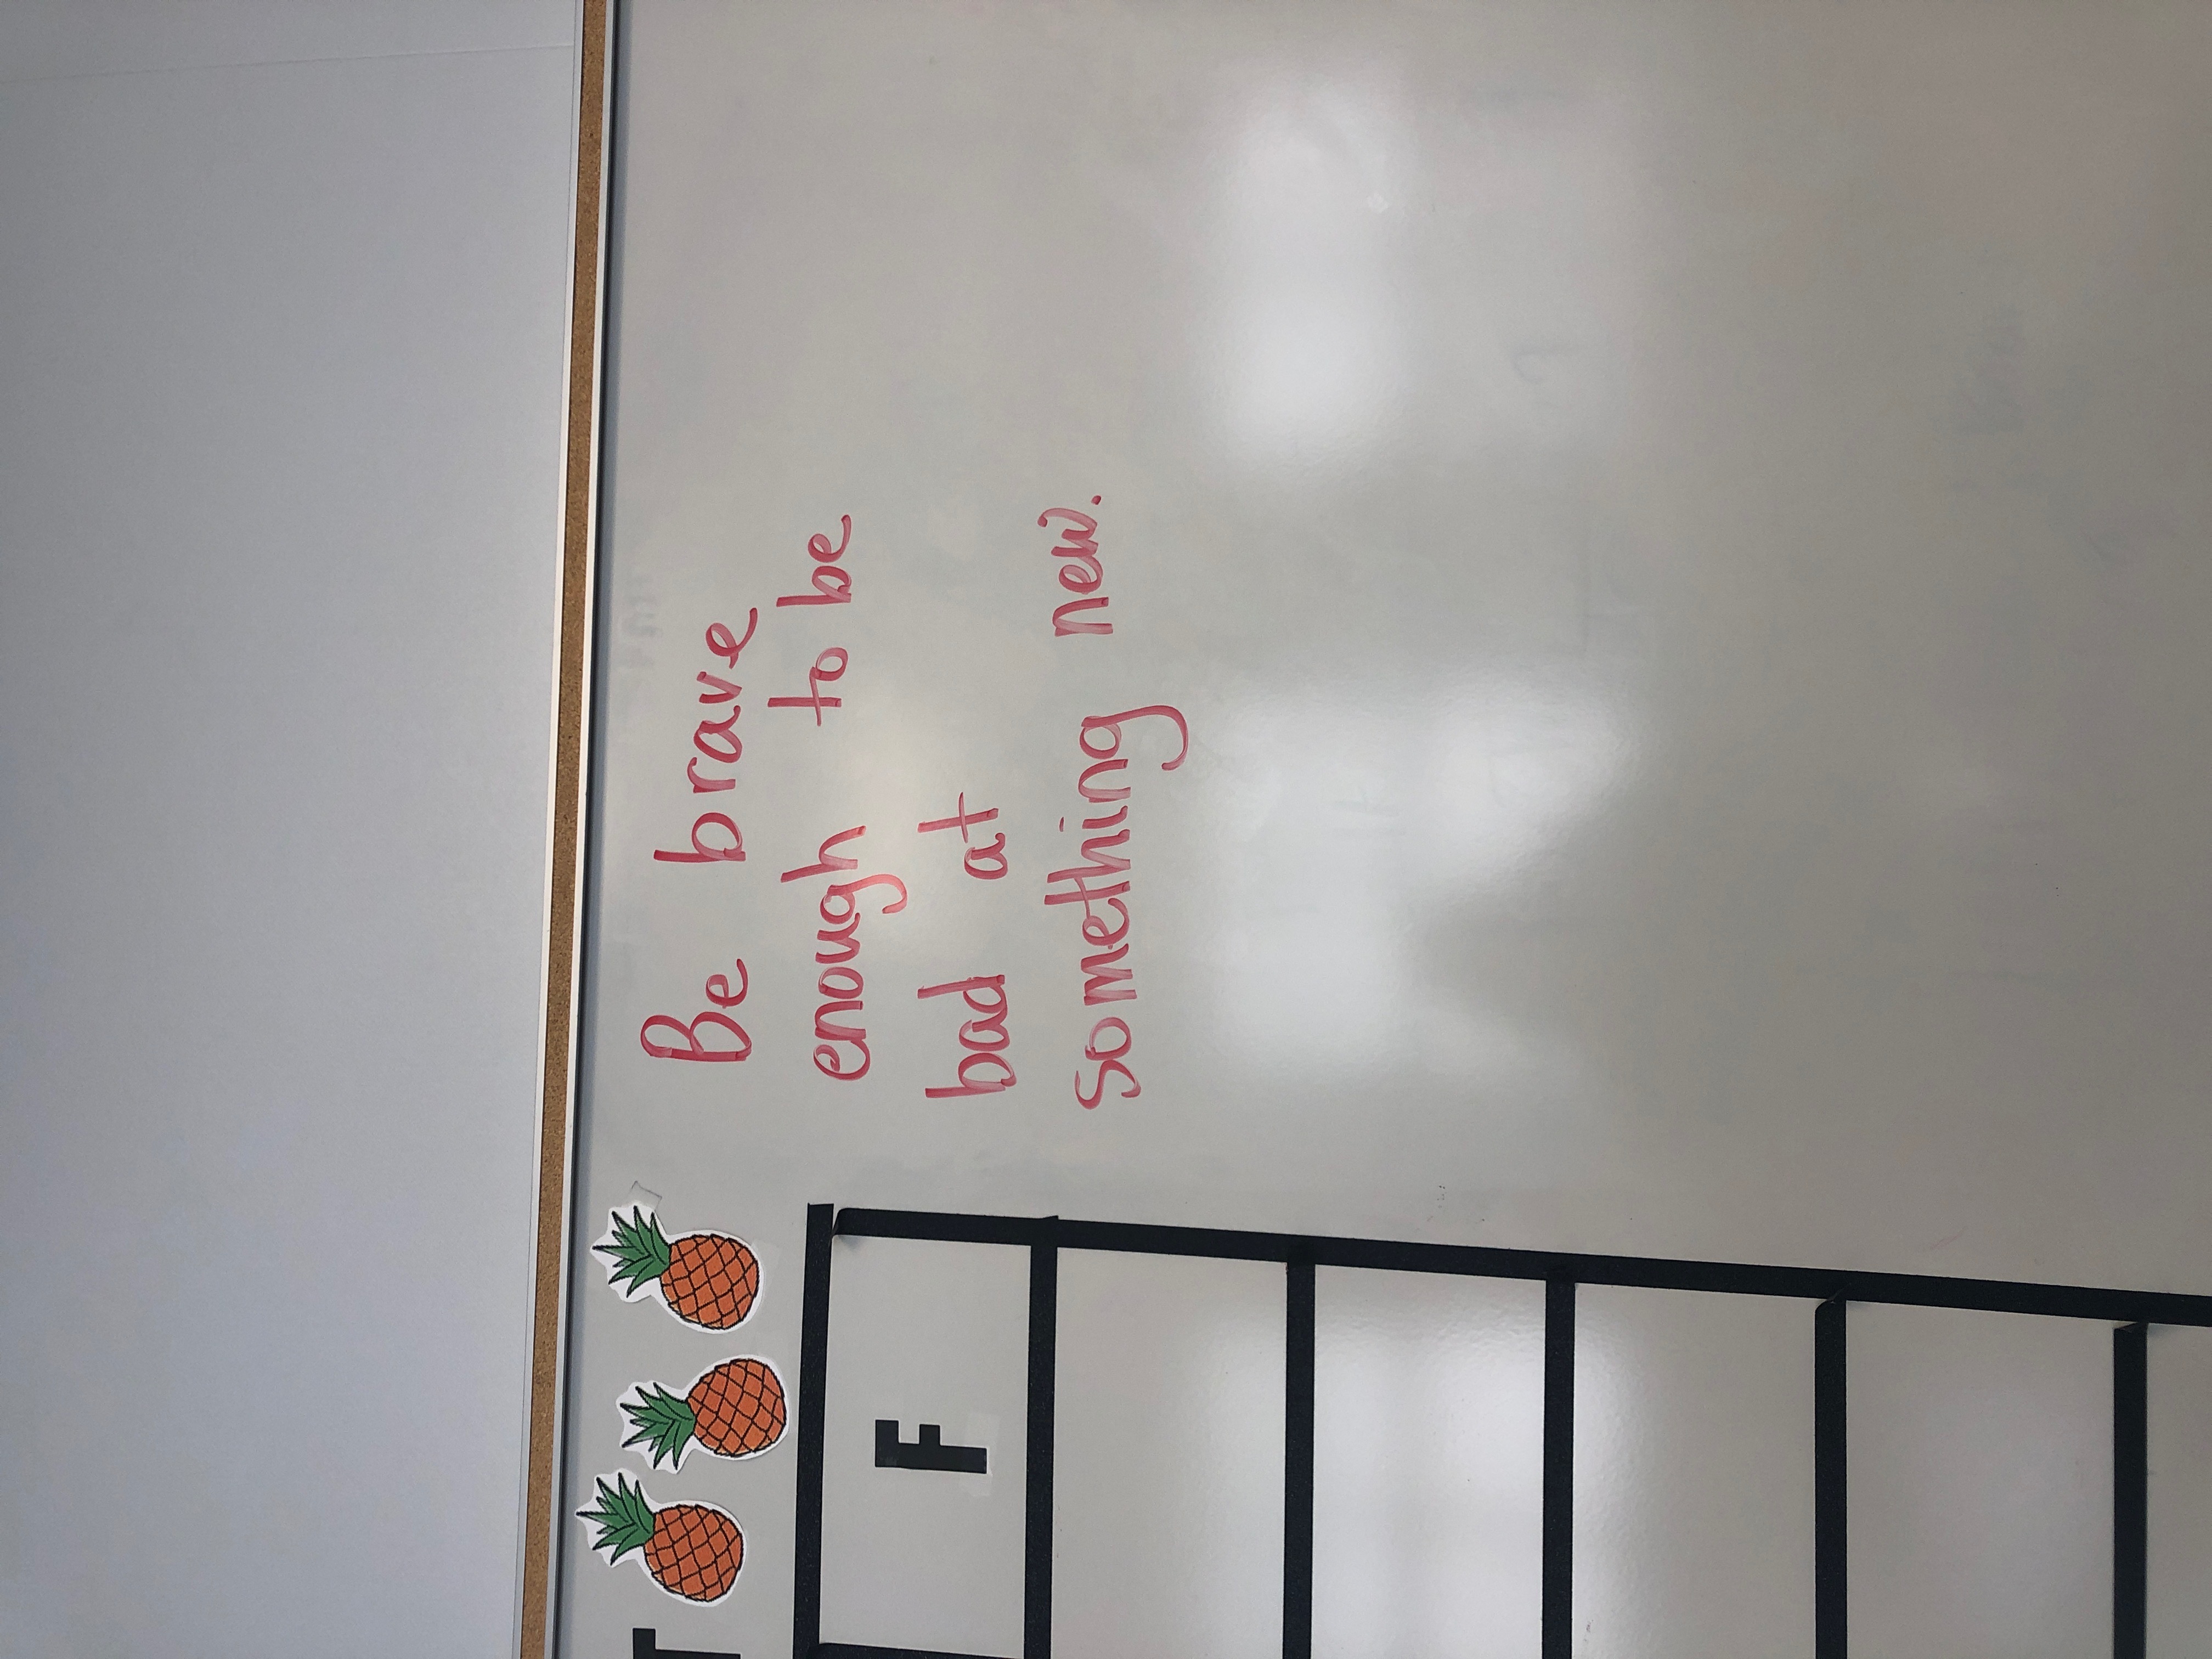 T
F
Be brave
enough to be
bad at
something new.